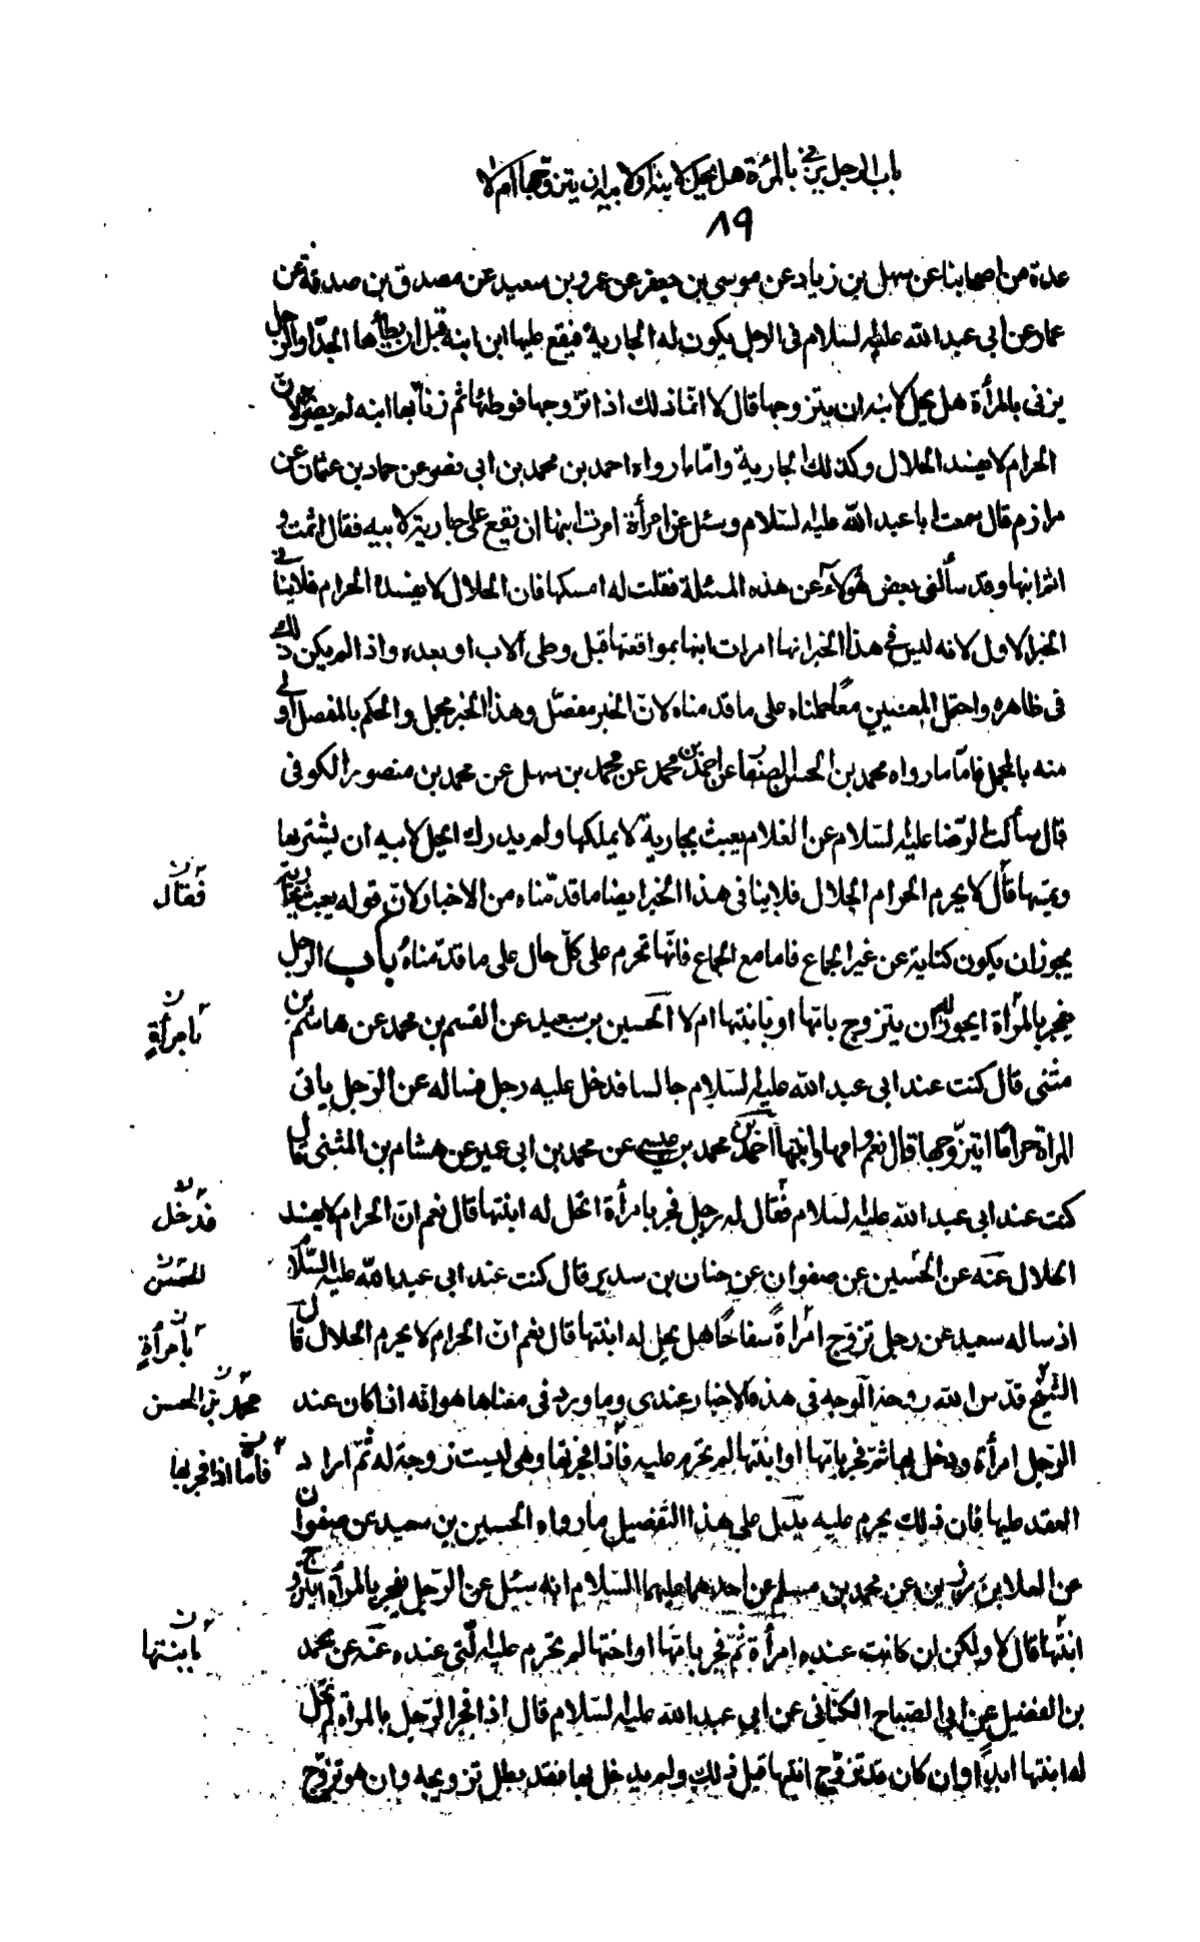 باب الرجل يزنى بالمرأة هل يحل لابنه او لابيه ان يتزوجها ام لا
٨٩
عدة من اصحابنا عن سهل بن زياد عن موسى بن جعفر عن عمرو بن سعيد عن مصدق بن صدقة عن
عمار عن ابى عبد الله عليه السلام فى الرجل يكون له الجارية فيقع عليها ابن ابنه قبل ان يطأها الجد او الرجل
يزنى بالمرأة هل يحل لابنه ان يتزوجها قال لا انما ذلك اذا تزوجها فوطئها ثم زنا بها ابنه لم يضره لان
الحرام لا يفسد الحلال وكذلك الجارية واما ما رواه احمد بن محمد بن ابى نصر عن حماد بن عثمان عن
مرازم قال سمعت ابا عبد الله عليه السلام وسئل عن امرأة امرت ابنها ان يقع على جارية لابيه فقال اثمت و
اثم ابنها وقد سألنى بعض هؤلاء عن هذه المسئلة فقلت له امسكها فان الحلال لا يفسده الحرام فلا ينافى
الخبر الاول لانه ليس فى هذا الخبر انها امرات ابنها بمواقعتها قبل وطى الاب او بعده واذا لم يكن ذلك
فى ظاهره واحتمل المعنيين معا حملناه على ما قدمناه لان الخبر مفصل وهذا الخبر مجمل والحكم بالمفصل اولى
منه بالمجمل فاما ما رواه محمد بن الحسن الصفار عن احمد بن محمد عن محمد بن سهل عن محمد بن منصور الكوفى
قال سألت الرضا عليه السلام عن الغلام يعبث بجارية لا يملكها ولم يدرك ايحل لابيه ان يشتريها
ويمسها قال لا يحرم الحرام الحلال فلا ينافى هذا الخبر ايضا ما قدمناه من الاخبار لان قوله يعبث بجارية
فقال ن
يجوز ان يكون كناية عن غير الجماع فاما مع الجماع فانها تحرم على كل حال على ما قدمناه باب الرجل
يفجر بالمرأة ايجوز له ان يتزوج بامها او بابنتها ام لا الحسين بن سعيد عن القسم بن محمد عن هاشم بن
بامرأة ن
مثنى قال كنت عند ابى عبد الله عليه السلام جالسا فدخل عليه رجل فساله عن الرجل ياتى
المراة حراما ايتزوجها قال نعم وامها وابنتها احمد بن محمد بن عيسى عن محمد بن ابى عمير عن هشام بن المثنى قال
كنت عند ابى عبد الله عليه السلام فقال له رجل فجر بامرأة اتحل له ابنتها قال نعم ان الحرام لا يفسد
فدخل
الحلال عنه عن الحسين عن صفوان عن حنان بن سدير قال كنت عند ابى عبد الله عليه السلام
الحسن ن
اذ ساله سعيد عن رجل تزوج امراة سفاحا هل يحل له ابنتها قال نعم ان الحرام لا يحرم الحلال قال
بامرأة ن
الشيخ قدس الله روحه الوجه فى هذه الاخبار عندى وما ورد فى معناها هو انه اذا كان عند
محمد بن الحسن ن
الرجل امرأة ودخل بها ثم فجر بامها او ابنتها لم تحرم عليه فاذا فجر بها وهى ليست زوجة له ثم اراد
فاما اذا فجر بها ن
العقد عليها فان ذلك يحرم عليه يدل على هذا التفصيل ما رواه الحسين بن سعيد عن صفوان
عن العلا بن رزين عن محمد بن مسلم عن احدهما عليهما السلام انه سئل عن الرجل يفجر بالمرأة ايتزوج
ابنتها قال لا ولكن ان كانت عنده امرأة ثم فجر بامها او اختها لم تحرم عليه التى عنده عنه عن محمد
بابنتها ن
بن الفضيل عن ابى الصباح الكنانى عن ابى عبد الله عليه السلام قال اذا فجر الرجل بالمراة لم تحل
له ابنتها ابدا وان كان قد تزوج ابنتها قبل ذلك ولم يدخل بها فقد بطل تزويجه وان هو تزوج